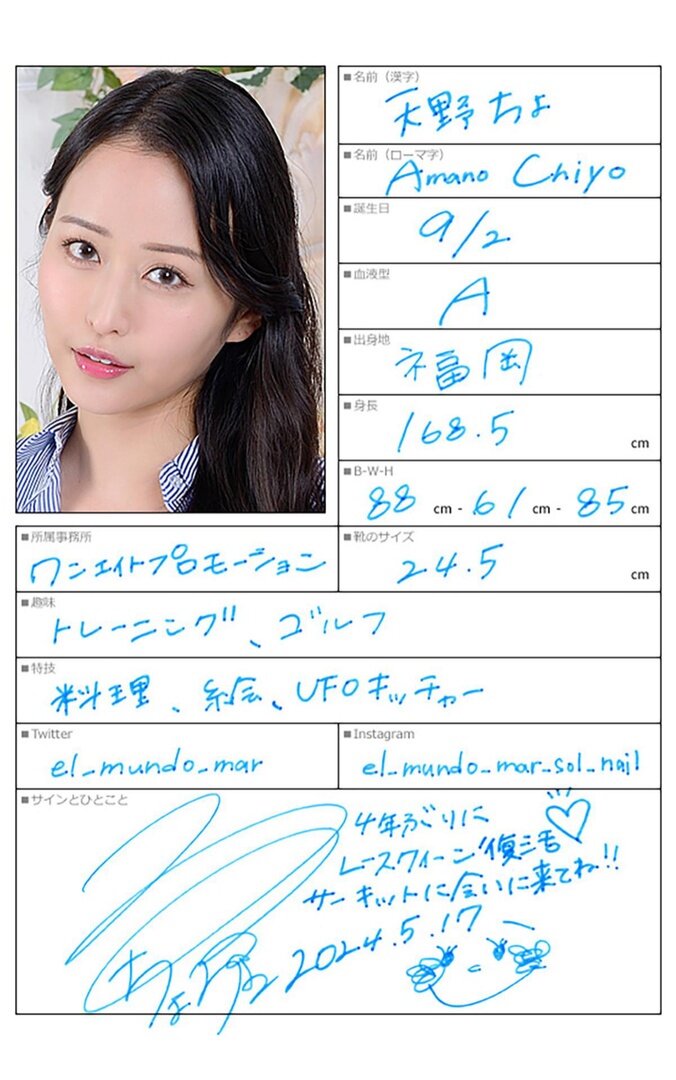 ■名前（漢字）
天野ちよ
■名前（ローマ字）
Amano Chiyo
■誕生日
9/2
■血液型
A
■出身地
福岡
■身長
168.5 cm
■B-W-H
88 cm - 61 cm - 85 cm
■所属事務所
ワンエイトプロモーション
■靴のサイズ
24.5 cm
■趣味
トレーニング、ゴルフ
■特技
料理、絵、UFOキャッチャー
■Twitter
el_mundo_mar
■Instagram
el_mundo_mar_sol_nail
■サインとひとこと
4年ぶりに
レースクィーン復活♡
サーキットに会いに来てね!!
2024.5.17